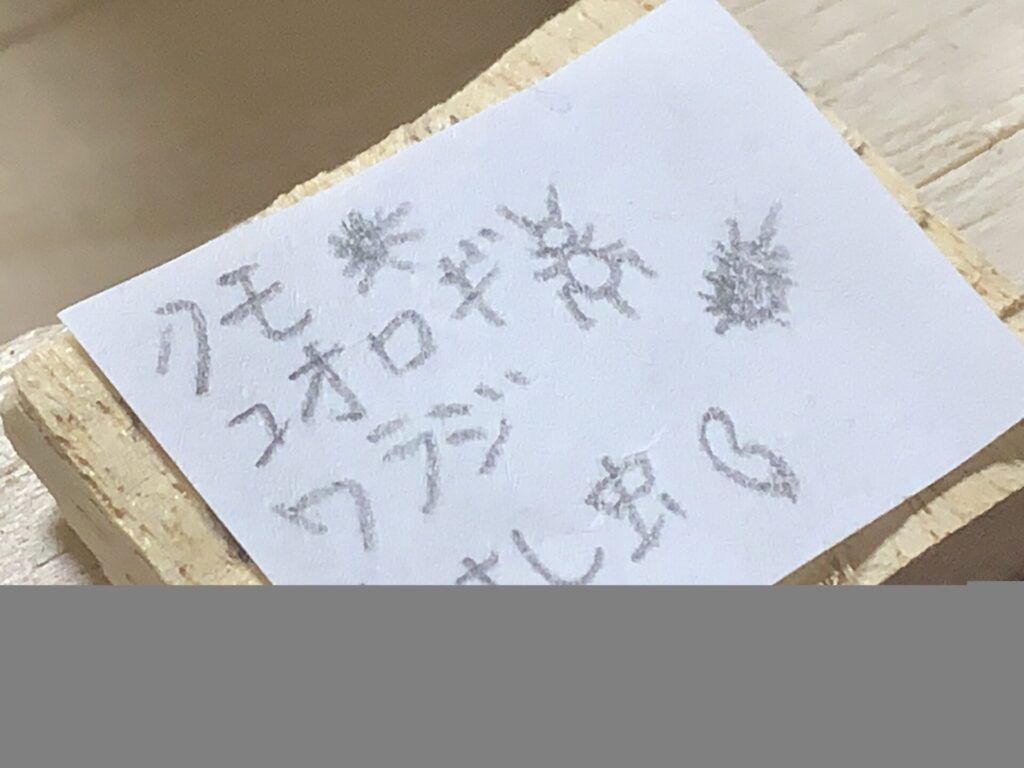 クモ
コオロギ
ワラジ
し虫